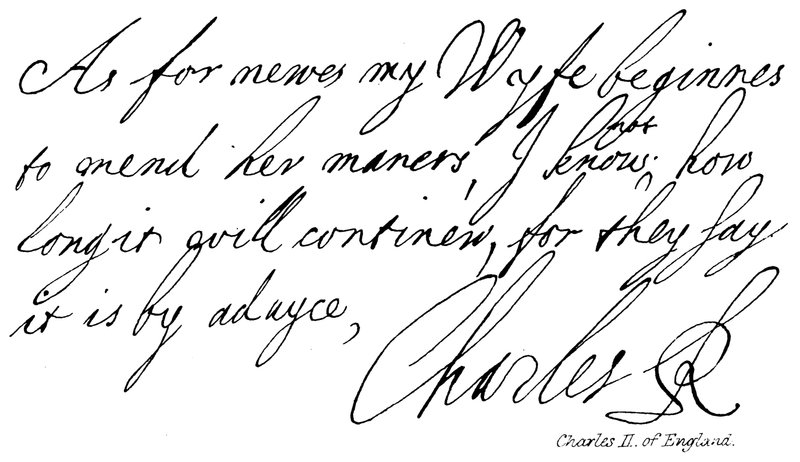 As for newes my Wyfe beginnes
to mend her maners, I know not how
long it will continew, for they say
it is by adayce,
Charles R
Charles II. of England.